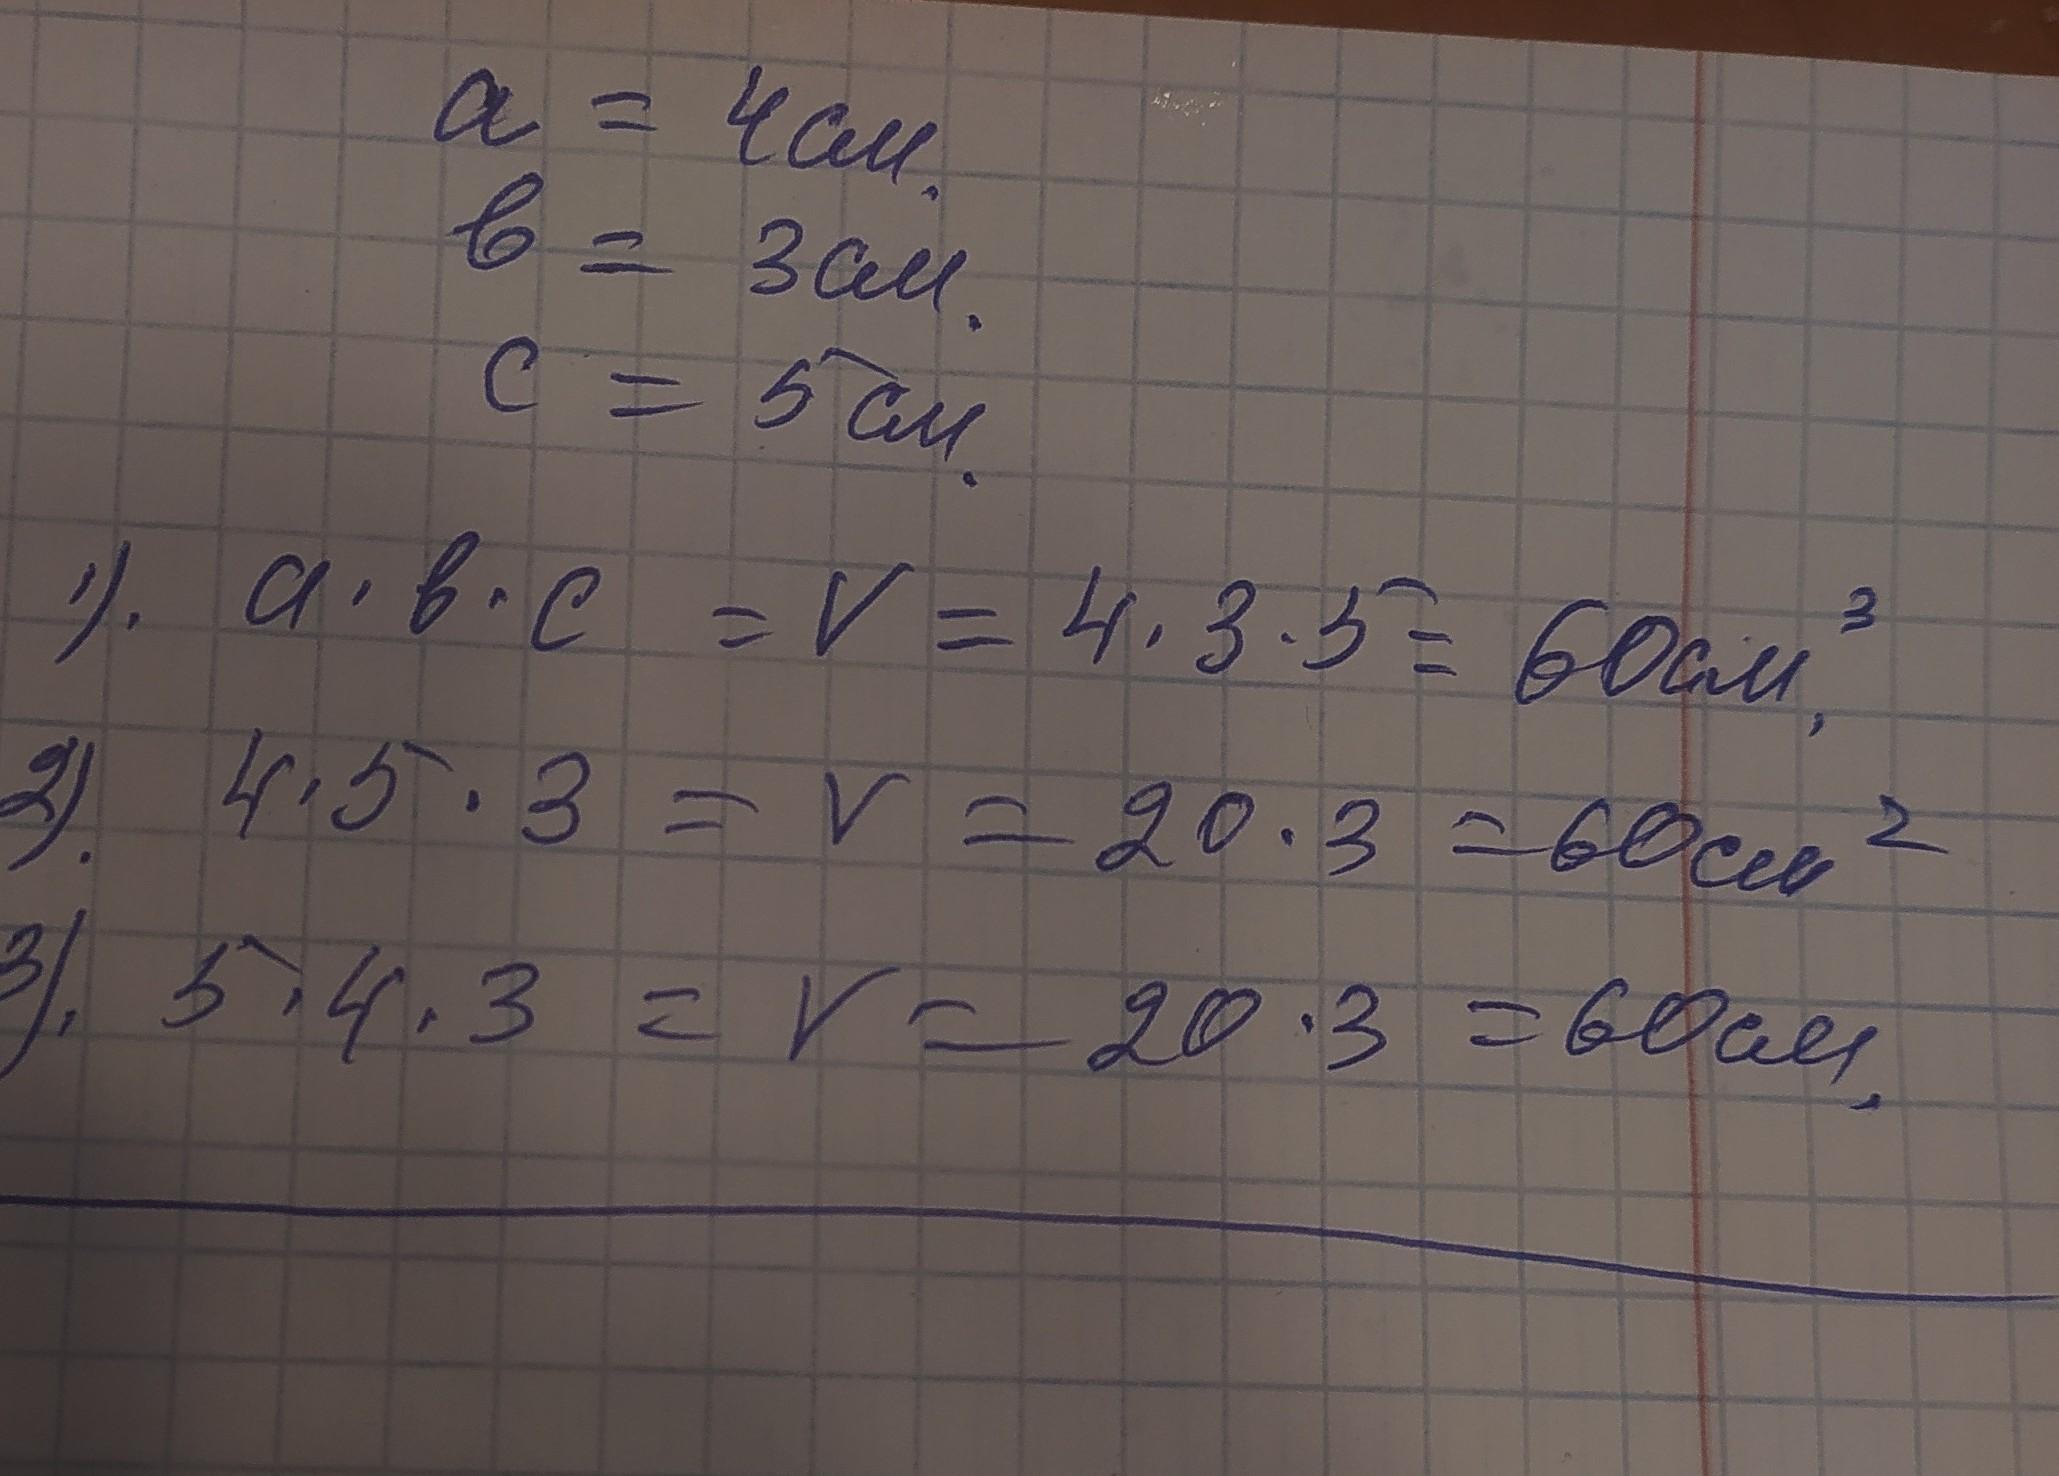 a = 4см.
в = 3см.
с = 5см.
1). a · в · с = V = 4 · 3 · 5 = 60см.³
2). 4 · 5 · 3 = V = 20 · 3 = 60см²
3). 5 · 4 · 3 = V = 20 · 3 = 60см.